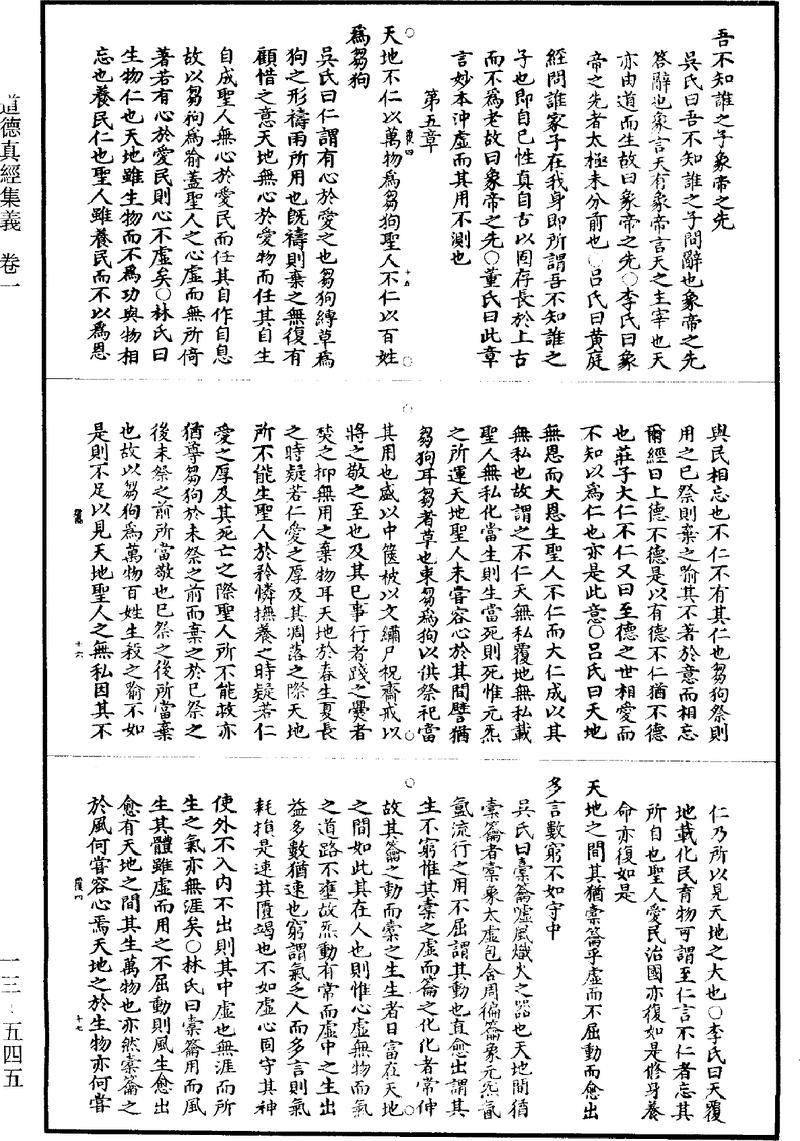 道德真經集義　卷一
一三・五四五
吾不知誰之子象帝之先
吳氏曰吾不知誰之子問辭也象帝之先
答辭也象言天有象帝言天之主宰也天
亦由道而生故曰象帝之先○李氏曰象
帝之先者太極未分前也○呂氏曰黃庭
經問誰家子在我身即所謂吾不知誰之
子也即自己性真自古以固存長於上古
而不為老故曰象帝之先○董氏曰此章
言妙本沖虛而其用不測也
第五章
天地不仁以萬物為芻狗聖人不仁以百姓
為芻狗
吳氏曰仁謂有心於愛之也芻狗縛草為
狗之形禱雨所用也既禱則棄之無復有
顧惜之意天地無心於愛物而任其自生
自成聖人無心於愛民而任其自作自息
故以芻狗為喻蓋聖人之心虛而無所倚
著若有心於愛民則心不虛矣○林氏曰
生物仁也天地雖生物而不為功與物相
忘也養民仁也聖人雖養民而不以為恩
與民相忘也不仁不有其仁也芻狗祭則
用之已祭則棄之喻其不著於意而相忘
爾經曰上德不德是以有德不仁猶不德
也莊子大仁不仁又曰至德之世相愛而
不知以為仁也亦是此意○呂氏曰天地
無恩而大恩生聖人不仁而大仁成以其
無私也故謂之不仁天無私覆地無私載
聖人無私化當生則生當死則死惟元炁
之所運天地聖人未嘗容心於其間譬猶
芻狗耳芻者草也束芻為狗以供祭祀當
其用也盛以巾篋被以文繡尸祝齋戒以
將之敬之至也及其已事行者踐之爨者
焚之抑無用之棄物耳天地於春生夏長
之時疑若仁愛之厚及其凋落之際天地
所不能生聖人於矜憐撫養之時疑若仁
愛之厚及其死亡之際聖人所不能救亦
猶尊芻狗於未祭之前而棄之於已祭之
後未祭之前所當敬也已祭之後所當棄
也故以芻狗為萬物百姓生殺之喻不如
是則不足以見天地聖人之無私因其不
十六
仁乃所以見天地之大也○李氏曰天覆
地載化民育物可謂至仁言不仁者忘其
所自也聖人愛民治國亦復如是修身養
命亦復如是
天地之間其猶橐籥乎虛而不屈動而愈出
多言數窮不如守中
吳氏曰橐籥噓風熾火之器也天地間猶
橐籥者橐象太虛包含周徧籥象元炁氤
氳流行之用不屈謂其動也直愈出謂其
生不窮惟其橐之虛而籥之化化者常伸
故其籥之動而橐之生生者日富在天地
之間如此其在人也則惟心虛無物而氣
之道路不壅故炁動有常而虛中之生出
益多數猶速也窮謂氣乏人而多言則氣
耗損是速其匱竭也不如虛心固守其神
使外不入內不出則其中虛也無涯而所
生之氣亦無涯矣○林氏曰橐籥用而風
生其體雖虛而用之不屈動則風生愈出
愈有天地之間其生萬物也亦然橐籥之
於風何嘗容心焉天地之於生物亦何嘗
十七